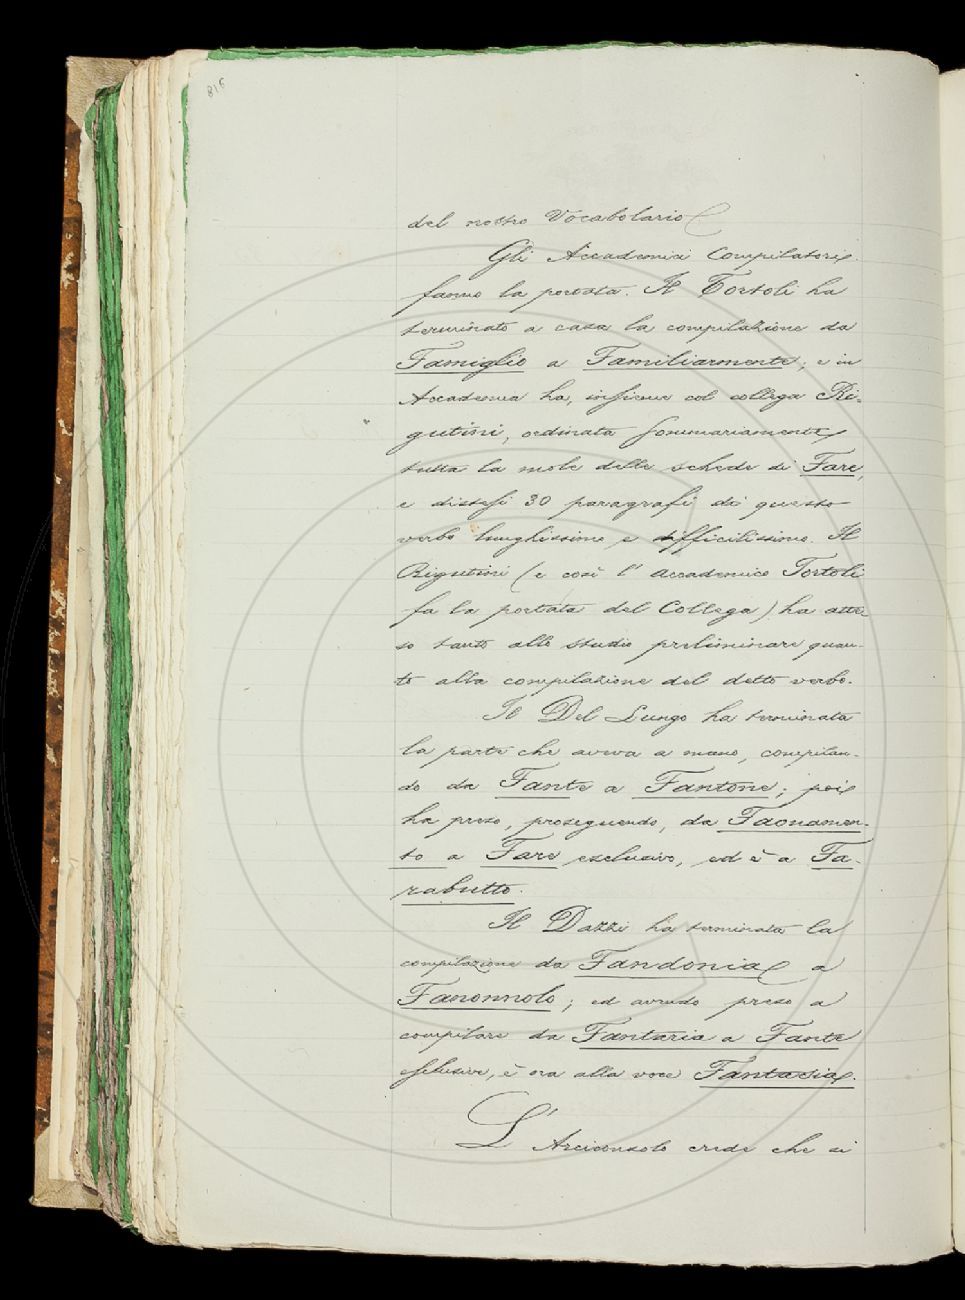 816
del nostro Vocabolario
Gli Accademici Compilatori
fanno la portata. Il Tortoli ha
terminato a casa la compilazione da
Famiglio a Familiarmente; e in
Accademia ha, insieme col collega Ri-
gutini, ordinata sommariamente
tutta la mole delle schede di Fare,
e distesi 30 paragrafi di questo
verbo lunghissimo e difficilissimo. Il
Rigutini (e così l'accademico Tortoli
fa la portata del Collega) ha atte-
so tanto allo studio preliminare quan-
to alla compilazione del detto verbo.
Il Del Lungo ha terminata
la parte che aveva a mano, compilan-
do da Fante a Fantone; poi
ha preso, proseguendo, da Faonamen-
to a Fare esclusive, ed è a Fa-
rabutto.
Il Dazzi ha terminata la
compilazione da Fandonia a
Fanonnolo; ed avendo preso a
compilare da Fantaria a Fante
esclusive, è ora alla voce Fantasia.
L'Arciconsolo crede che si